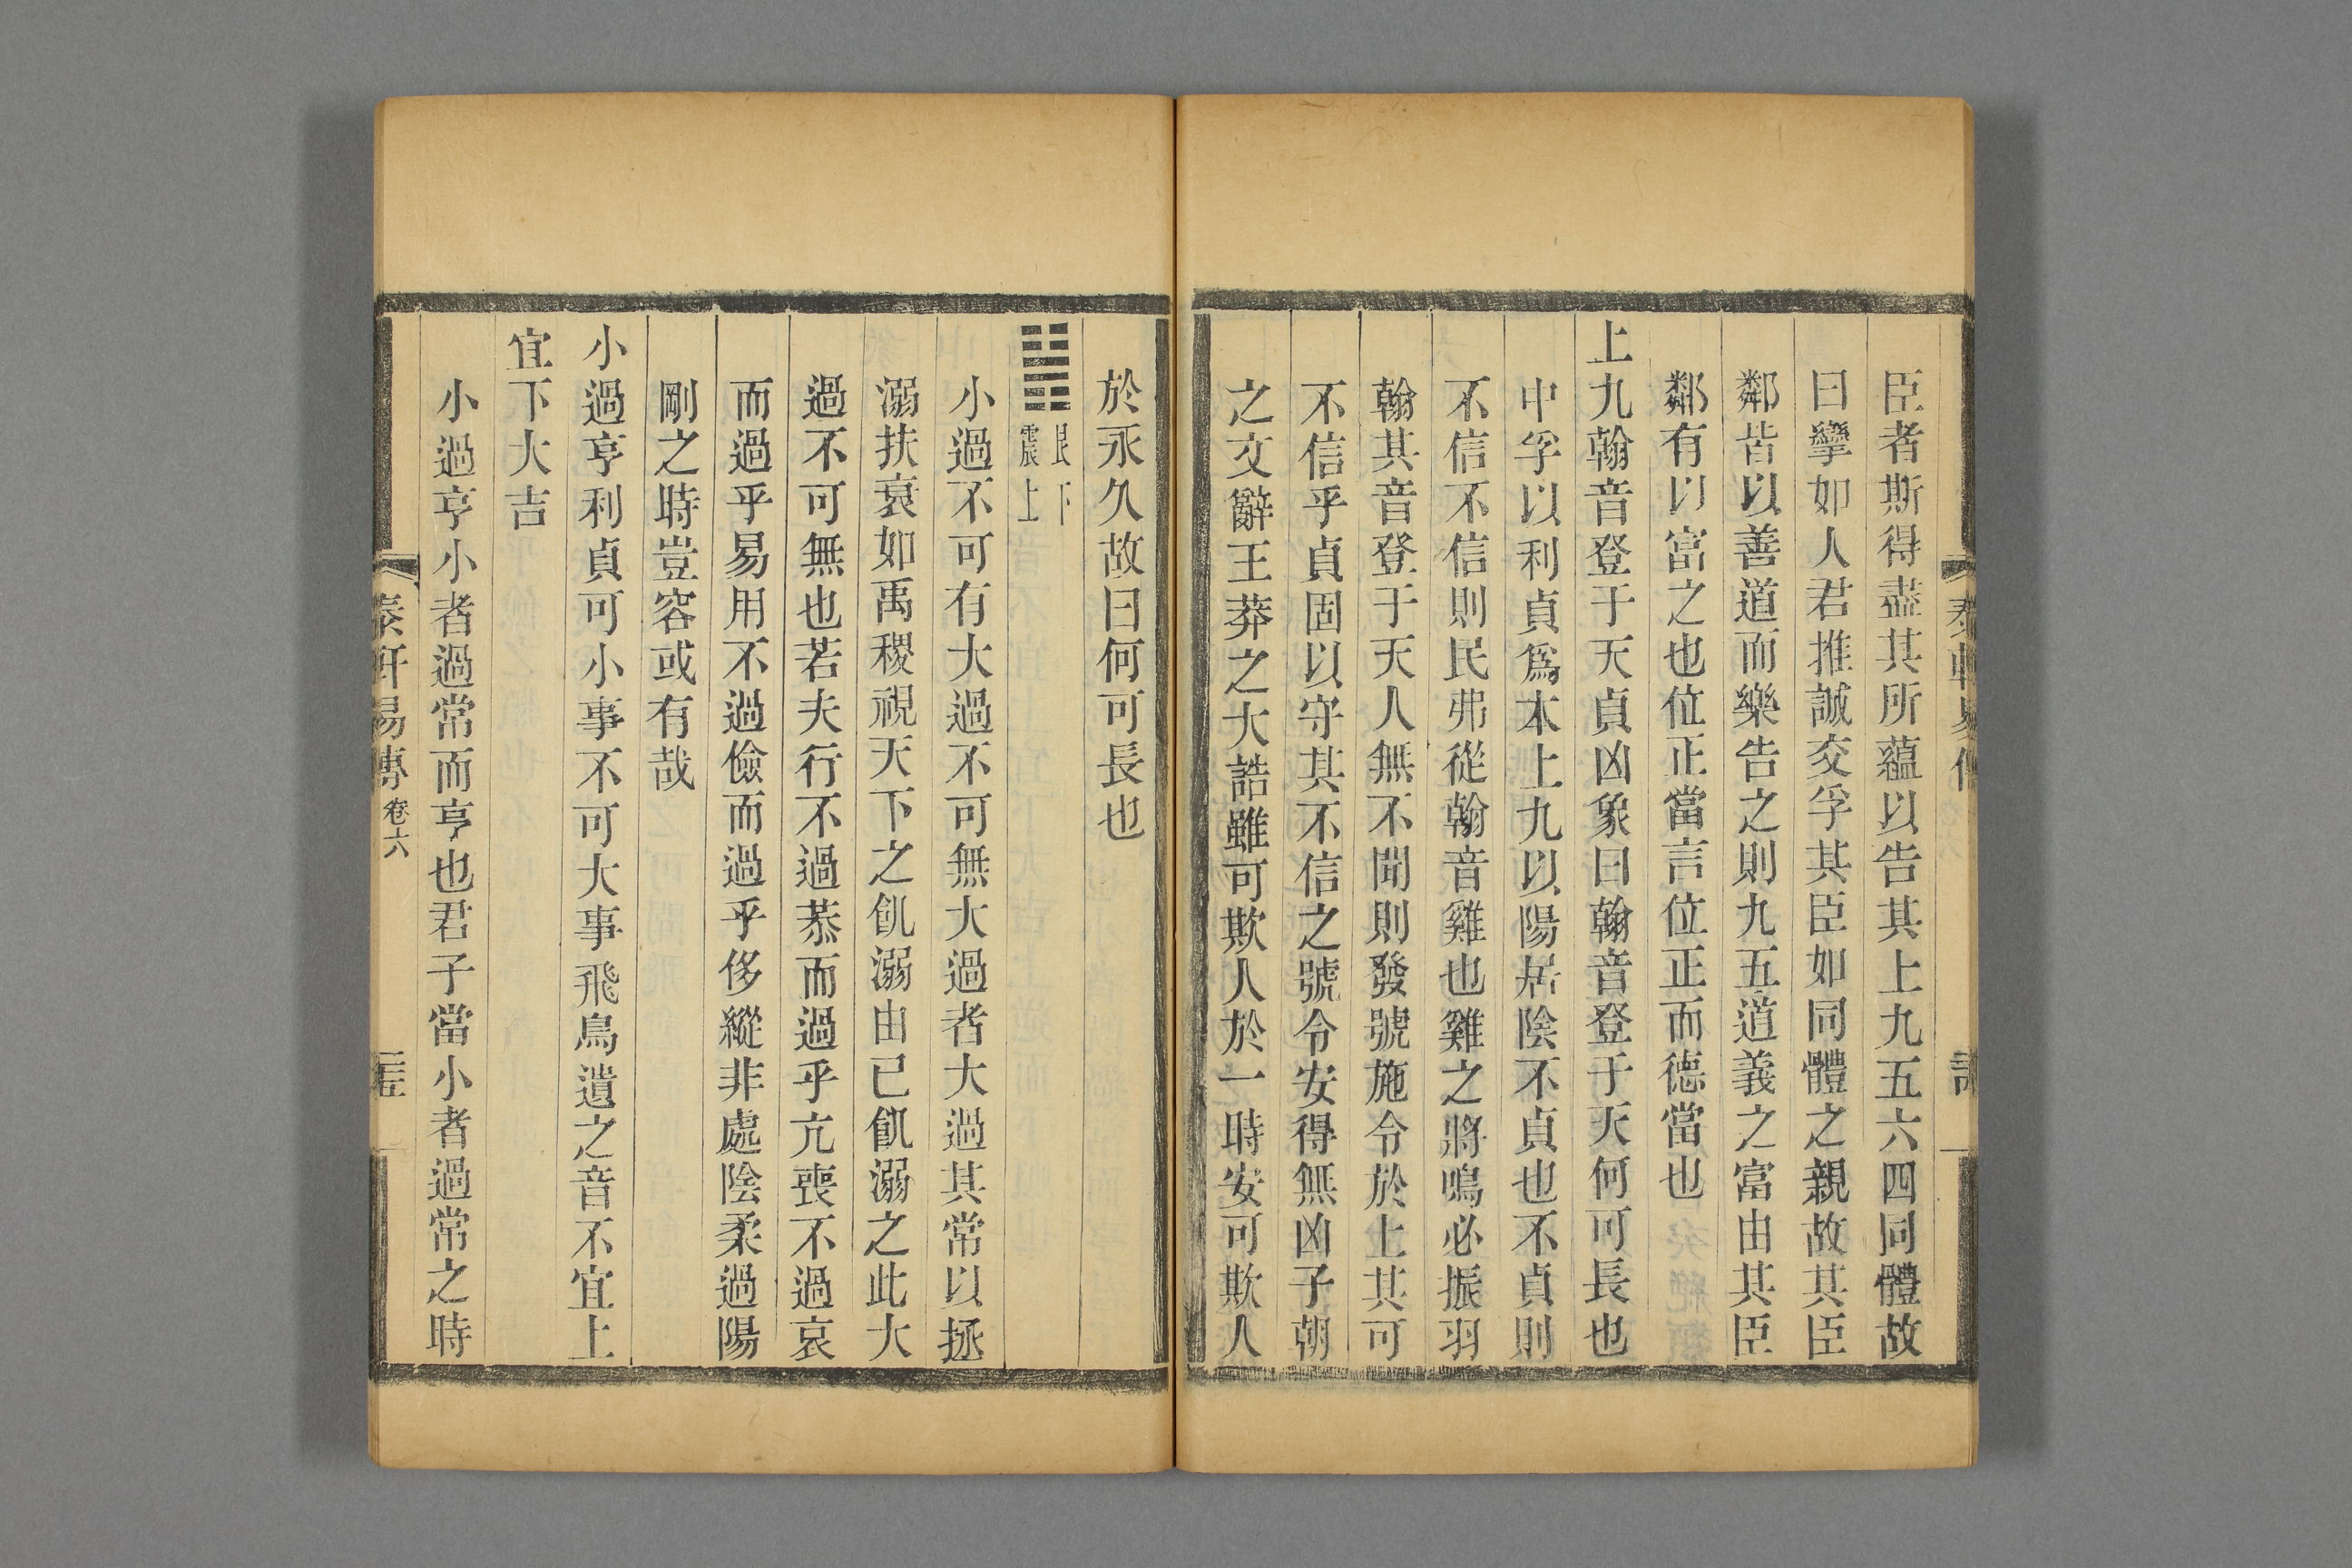 臣者斯得盡其所蘊以告其上九五六四同體故
曰攣如人君推誠交孚其臣如同體之親故其臣
鄰皆以善道而樂告之則九五道義之富由其臣
鄰有以富之也位正當言位正而德當也
上九翰音登于天貞凶象曰翰音登于天何可長也
中孚以利貞爲本上九以陽居陰不貞也不貞則
不信不信則民弗從翰音雞也雞之將鳴必振羽
翰其音登于天人無不聞則發號施令於上其可
不信乎貞固以守其不信之號令安得無凶子朝
之文辭王莽之大誥雖可欺人於一時安可欺人
於永久故曰何可長也
艮下
震上
小過不可有大過不可無大過者大過其常以拯
溺扶衰如禹稷視天下之飢溺由已飢溺之此大
過不可無也若夫行不過恭而過乎亢喪不過哀
而過乎易用不過儉而過乎侈縱非處陰柔過陽
剛之時豈容或有哉
小過亨利貞可小事不可大事飛鳥遺之音不宜上
宜下大吉
小過亨小者過常而亨也君子當小者過常之時
泰軒易傳 卷六